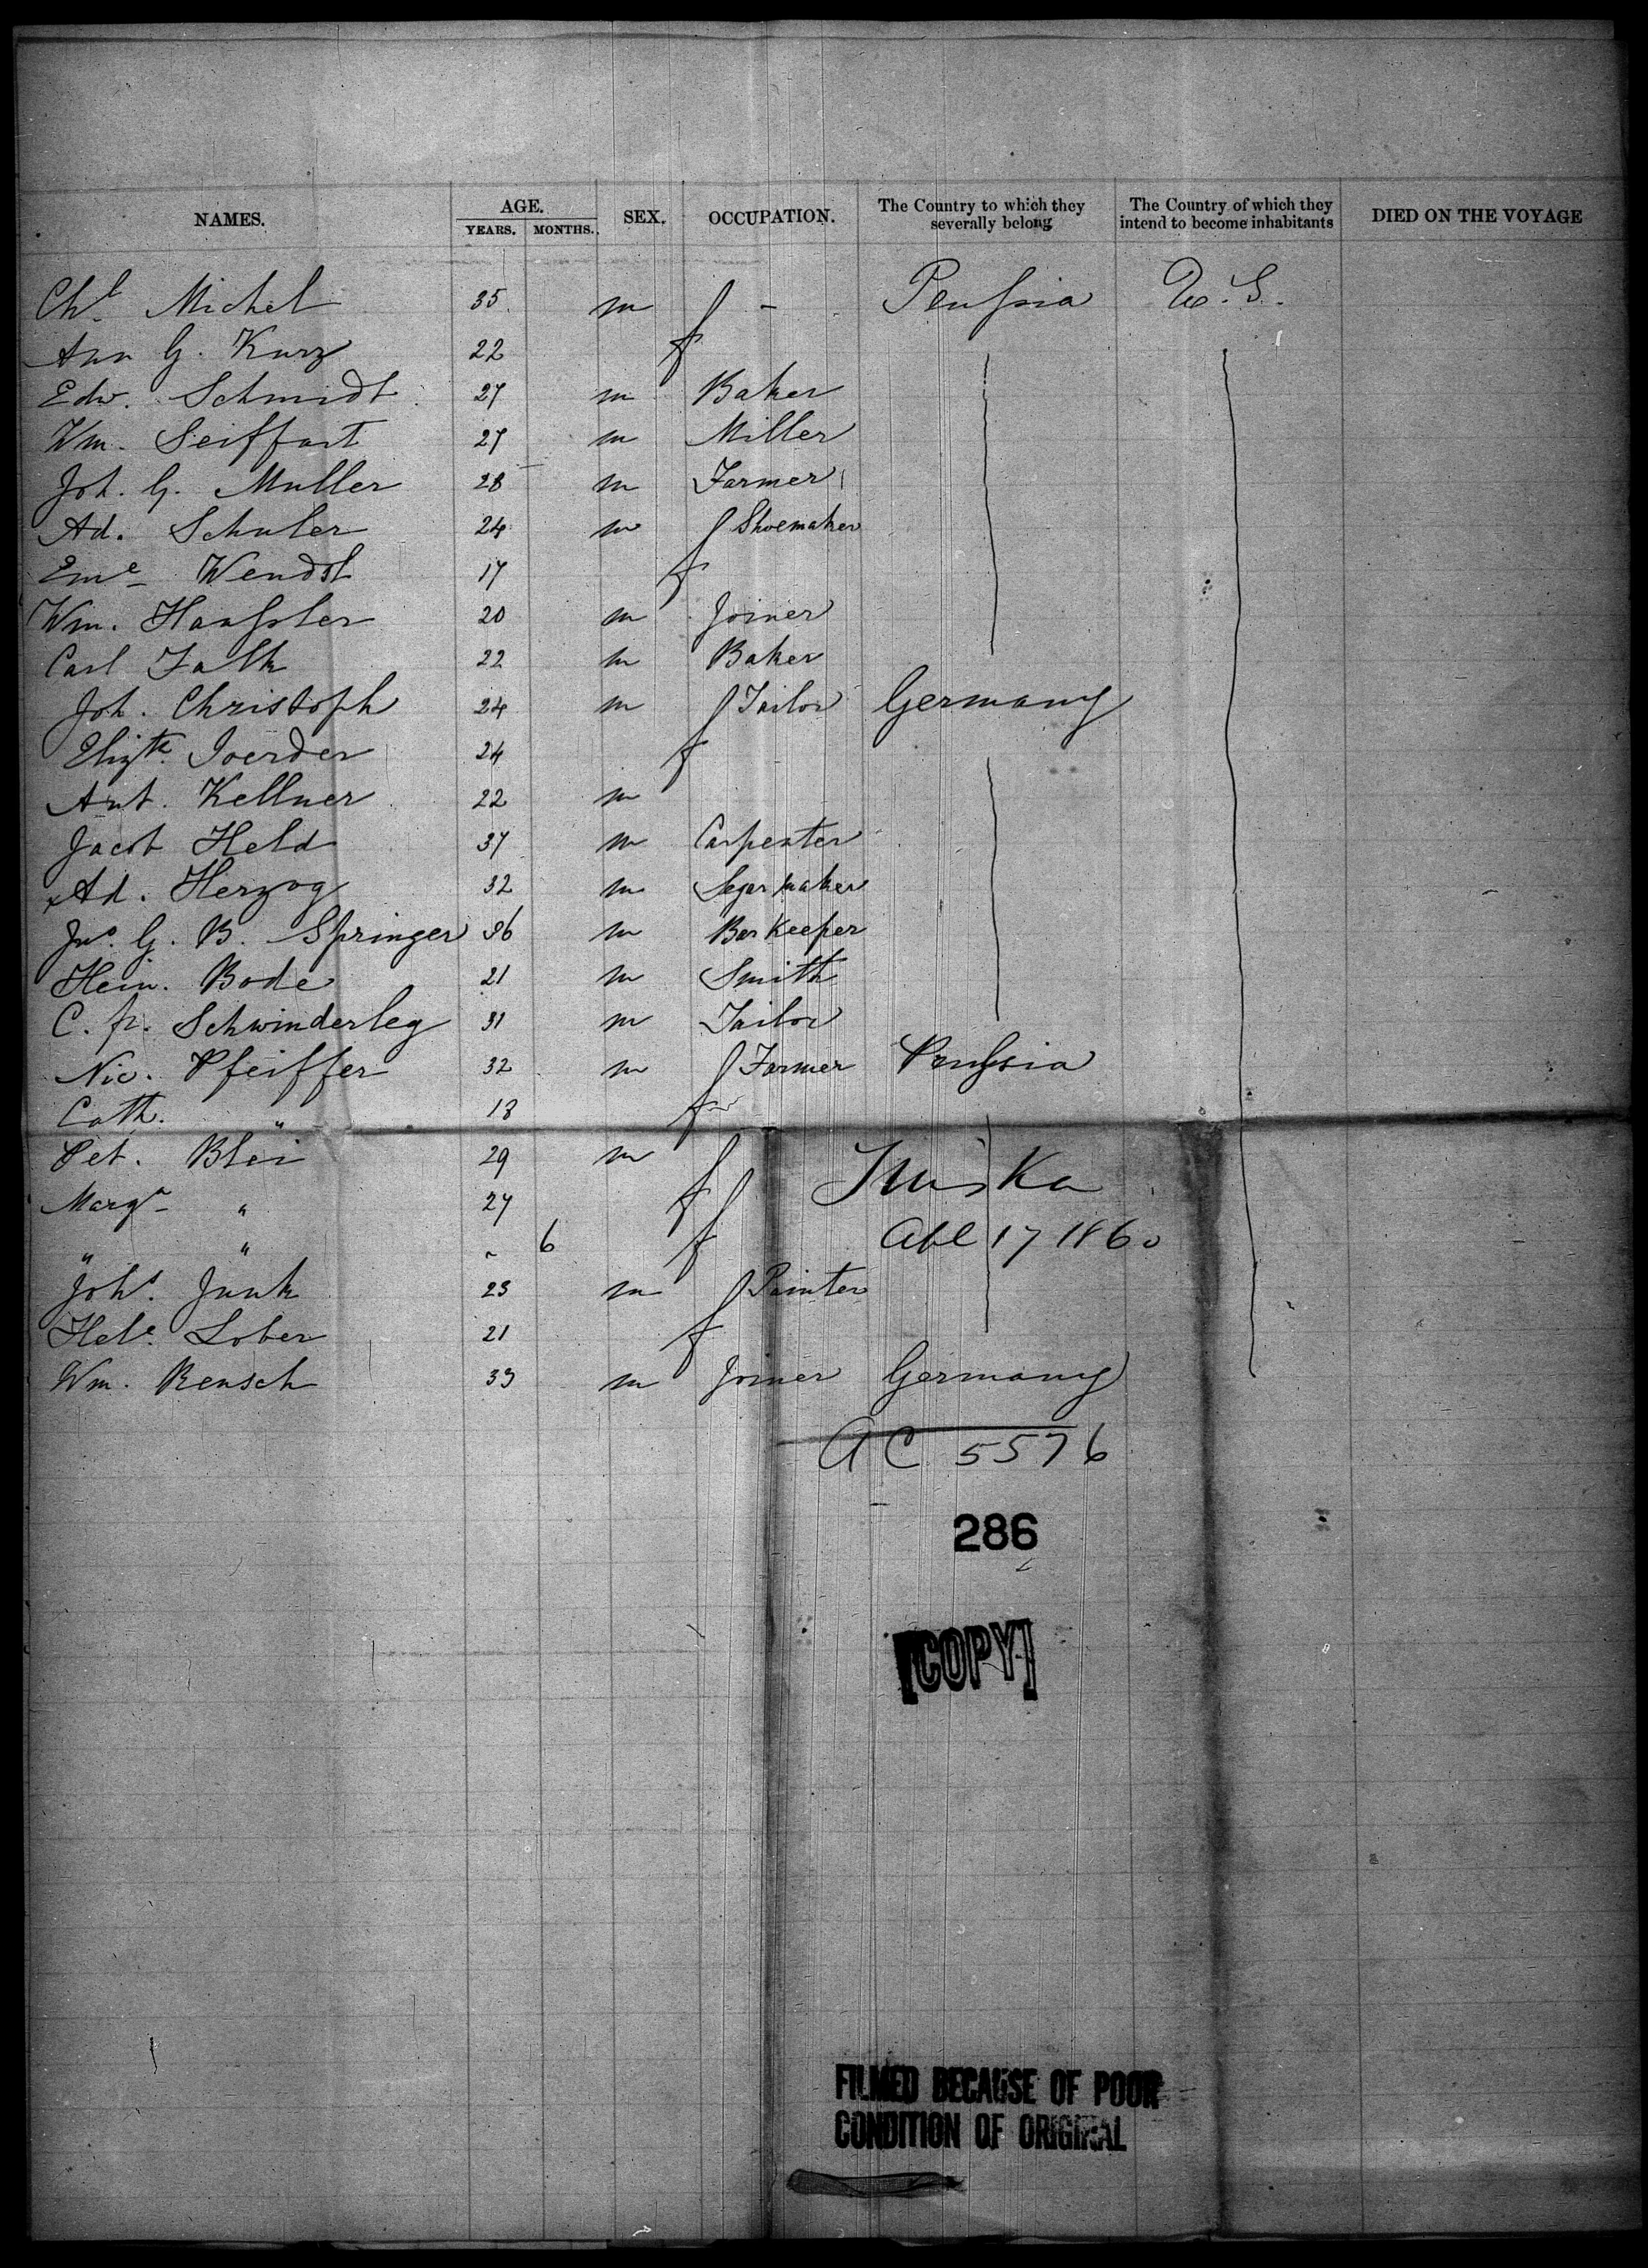 NAMES. AGE. YEARS. MONTHS. SEX. OCCUPATION. The Country to which they severally belong The Country of which they intend to become inhabitants DIED ON THE VOYAGE
Chs. Michel 35 m - Prussia U.S.
Ann G. Kurz 22 f
Edw. Schmidt 27 m Baker
Wm. Seiffart 27 m Miller
Joh. G. Muller 28 m Farmer
Ad. Schuler 24 m Shoemaker
Eme Wendst 17 f
Wm. Haussler 20 m Joiner
Carl Falk 22 m Baker
Joh. Christoph 24 m Tailor Germany
Elizth. Joerder 24 f
Ant. Kellner 22 m
Jacob Held 37 m Carpenter
Ad. Herzog 32 m Segar maker
Jno. G. B. Springer 36 m Bar Keeper
Hein. Bode 21 m Smith
C. fr. Schwinderleg 31 m Tailor
Nic. Pfeiffer 32 m Farmer Prussia
Cath. " 18 f
Pet. Blei 29 m
Margr " 27 f
" " - 6 f
Apl 17 1860
Johs. Junk 23 m Painter
Hele. Lober 21 f
Wm. Rensch 33 m Joiner Germany
AC 5576
286
[COPY]
FILMED BECAUSE OF POOR
CONDITION OF ORIGINAL